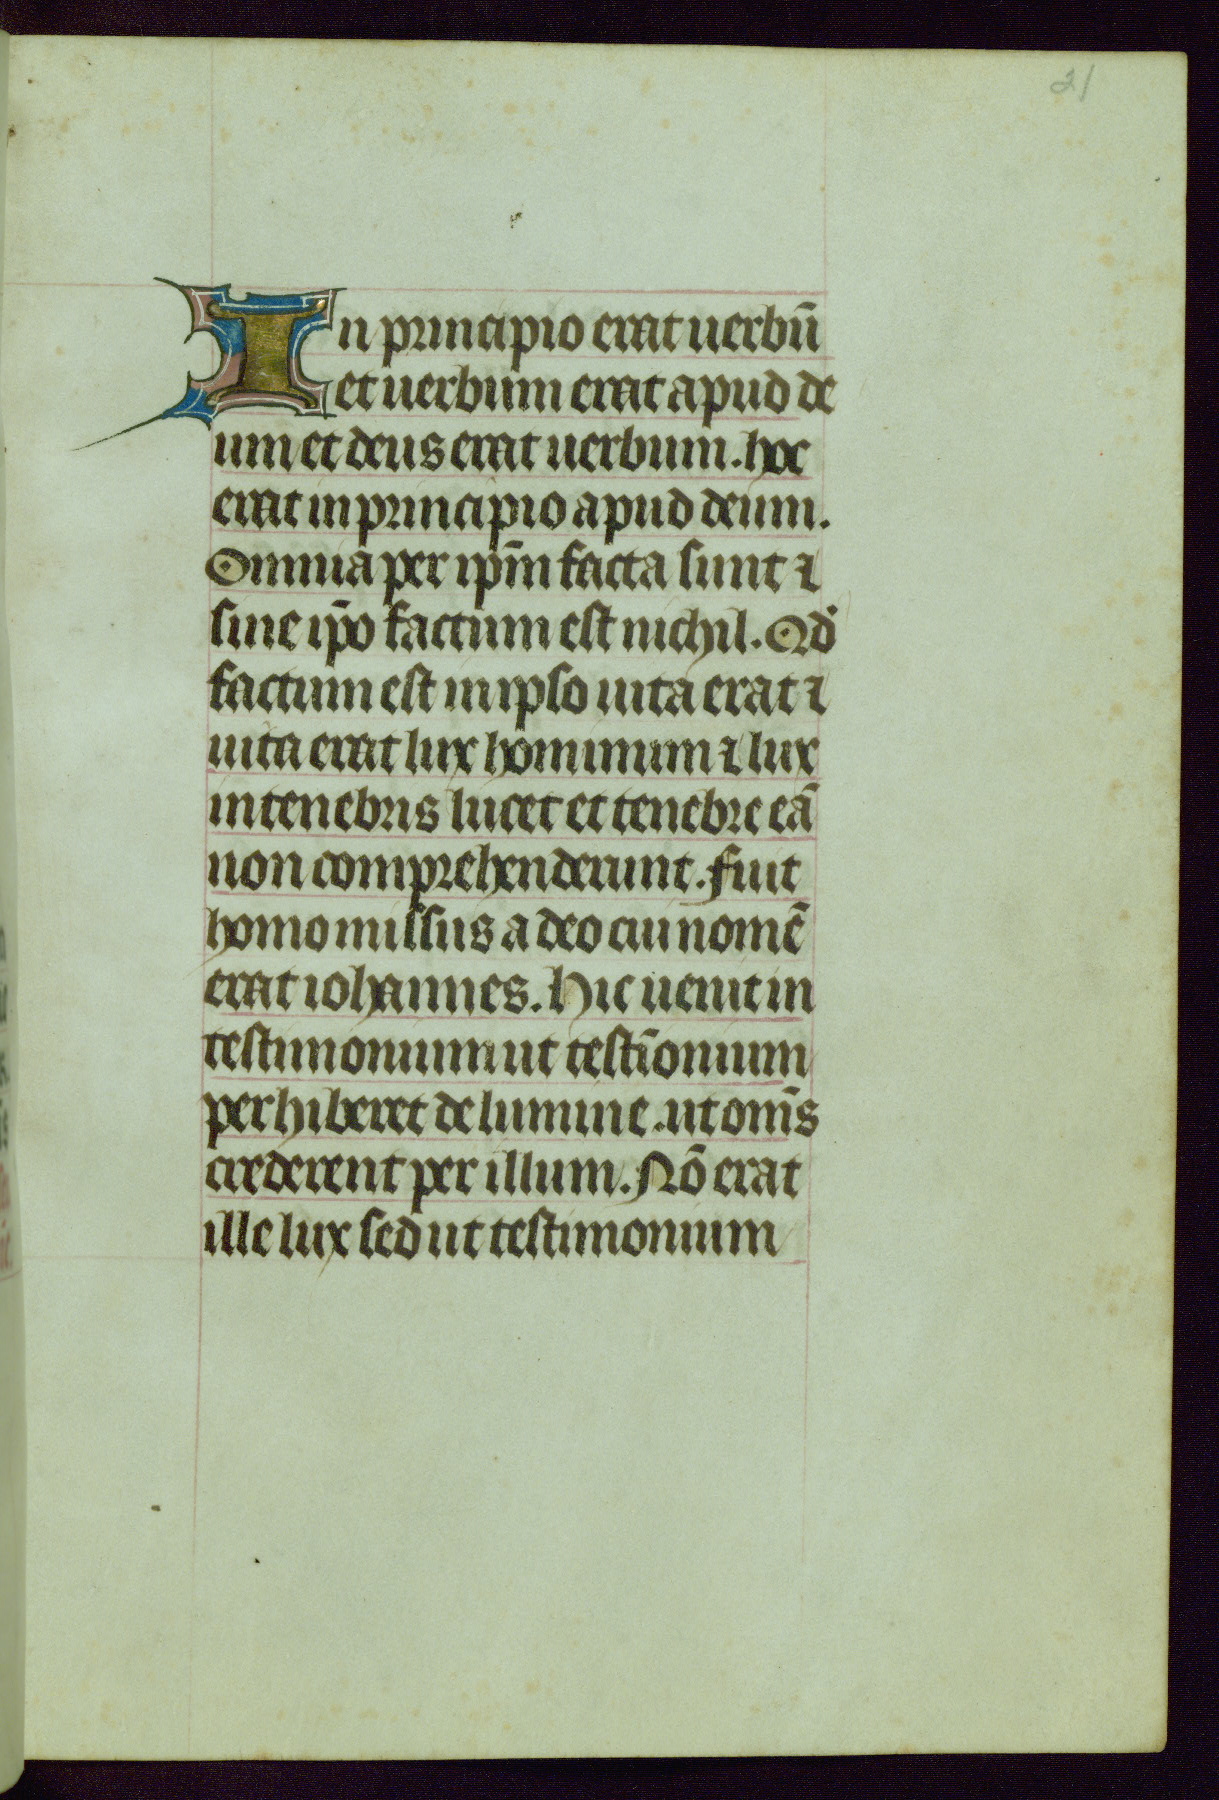 21
In principio erat uerbū
et uerbum erat apud de
um et deus erat uerbum. hoc
erat in principio apud deum.
Omnia per ip̄m facta sunt ⁊
sine ip̄o factum est nichil. Qd̄
factum est in ipso uita erat ⁊
uita erat lux hominum ⁊ lux
in tenebris lucet et tenebre eā
non comprehenderunt. fuit
homo missus a deo cui nomē
erat iohannes. Hic uenit in
testimonium ut testīonium
perhiberet de lumine. ut om̄s
crederent per illum. Nō erat
ille lux sed ut testimonium